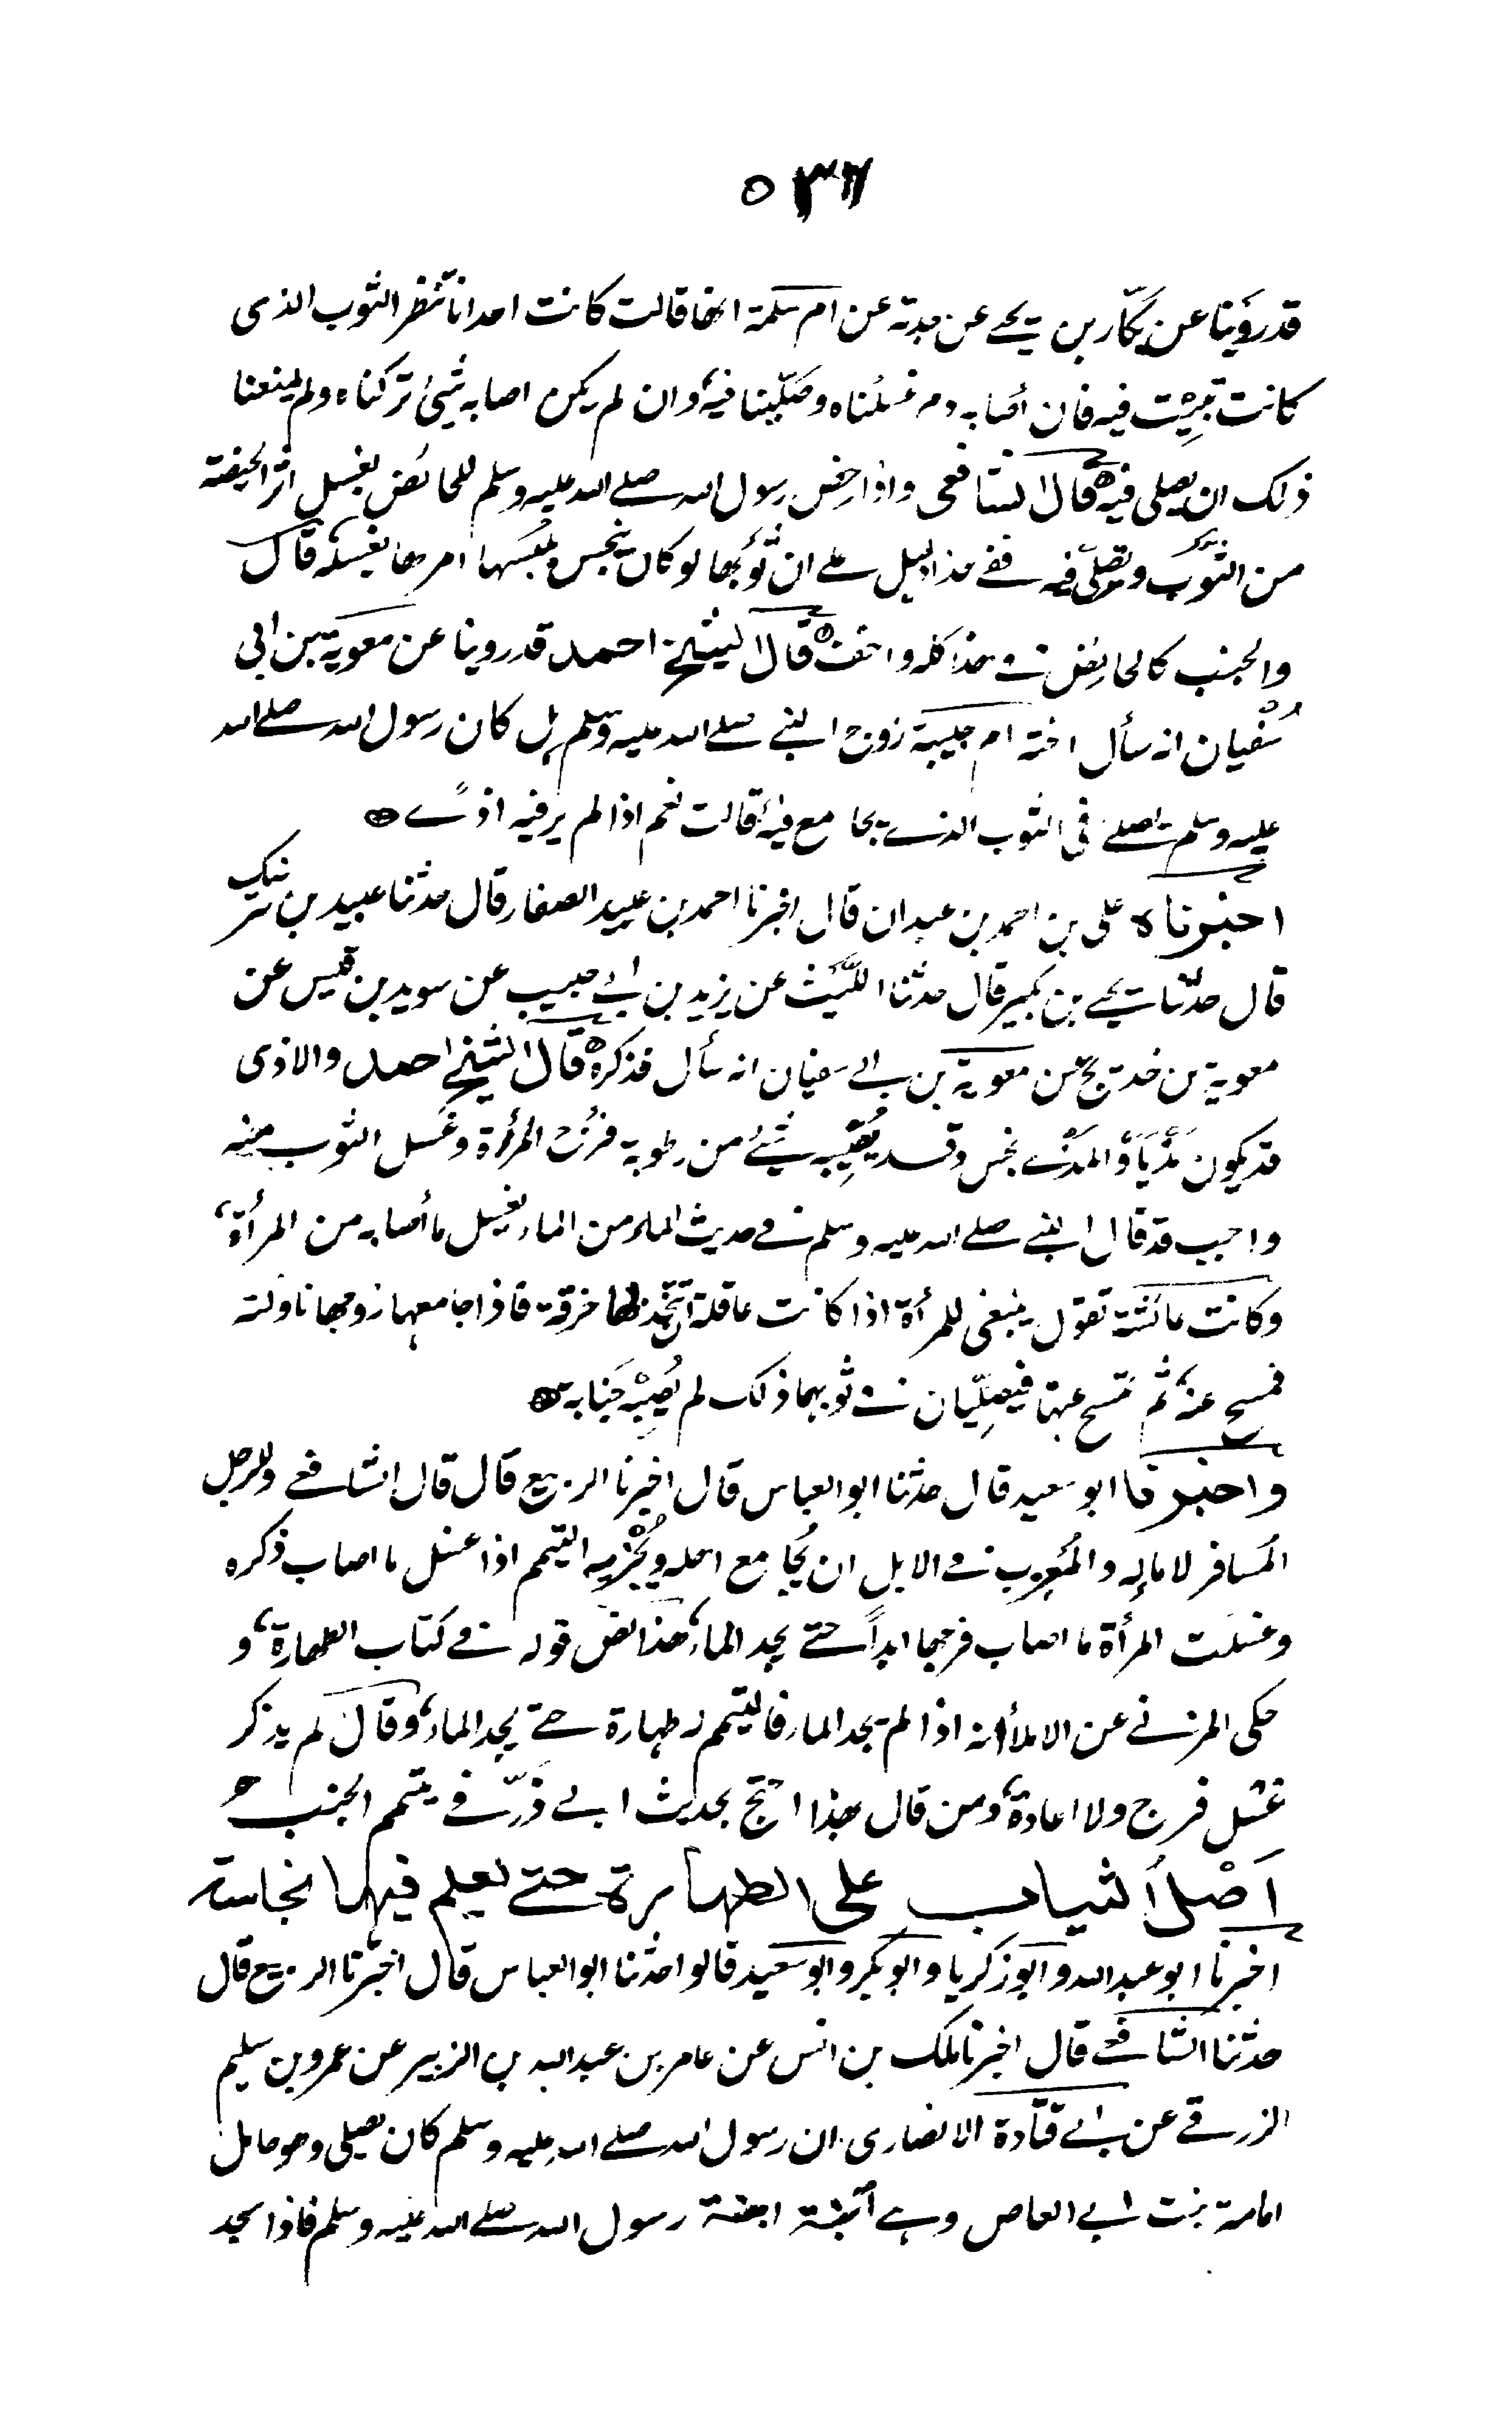 ٥٣٦
قد رَوَينا عن بكّار بن يحيے عن جدته عن ام سلمة انها قالت كانت احدانا تنظر الثوب الذى
كانت تَبِيْت فيه فان أصابه دم غسلناه وصَلّينا فيه، وان لم يكن اصابه شئ تركناه ولم يمنعنا
ذلك ان يصلى فيه قال الشافعى واذا رخص رسول الله صلے الله عليه وسلم للحائض بغسل اثر الحيضة
من الثوب وتصلّى فيه ففے هذا دليل علے ان ثوبها لو كان ينجس بلُبسها امرها بغسله، قال
والجنب كالحايض فے هذا كله واخف قال الشيخ احمد قد روينا عن معوية بن ابى
سُفْيان انه سأل اخته ام حبيبة زوج النبے صلے الله عليه وسلم هل كان رسول الله صلے الله
عليه وسلم يصلے فى الثوب الذے يجامع فيه، قالت نعم اذا لم ير فيه اذًے
اخبرناه على بن احمد بن عبدان قال اخبرنا احمد بن عبيد الصفار قال حدثنا عبيد بن شريك
قال حدثنا يحيے بن بكير قال حدثنا اللّيث عن يزيد بن ابے حبيب عن سويد بن قيس عن
معوية بن خديج عن معوية بن ابے سفيان انه سأل فذكره قال الشيخ احمد والاذى
قد يكون مَذْيًا وَالمَذْے نجس وقد يُصِيْبه شئے من رطوبة فرج المرأة وغسل الثوب منه
واجب قد قال النبے صلے الله عليه وسلم فے حديث الماء من الماء يغسل ما أصابه من المرأة،
وكانت عائشة تقول ينبغى للمرأة اذا كانت عاقلة ان تتخذ لها خرقة فاذا جامعها زوجها ناولته
فمسح عنه، ثم تمسح عنها فيصلّيان فے ثوبهما ذلك لم يُصِبْه جَنابة
واخبرنا ابو سعيد قال حدثنا ابو العباس قال اخبرنا الربيع قال قال الشافعے وللرجل
المُسافر لا ماء له والمُعزِب فے الابل ان يُجامع اهله ويُجْزيه التيمم اذا غسل ما اصاب ذكره
وغسلت المرأة ما اصاب فرجها ابداً حتے يجد الماء، هذا نص قوله فے كتاب الطهارة، و
حكى المزنے عن الاملأ انه اذا لم يجد الماء فالتيمم له طهارة حتے يجد الماء، وقال لم يذكر
غسْل فرج ولا اعادة، ومن قال بهذا احتج بحديث ابے ذرّ فے تيمم الجنب
اَصْل الثياب على الطهارة حتے يعلم فيها نجاسة
اخبرنا ابو عبد الله وابو زكريا وابو بكر وابو سعيد قالوا حدثنا ابو العباس قال اخبرنا الربيع قال
حدثنا الشافعے قال اخبرنا ملك بن انس عن عامر بن عبد الله بن الزبير عن عمرو بن سليم
الزرقے عن ابے قتادة الانصارى ان رسول الله صلے الله عليه وسلم كان يصلى وهو حامل
امامة بنت ابے العاص وہے ابنة ابنة رسول الله صلے الله عليه وسلم فاذا سجد